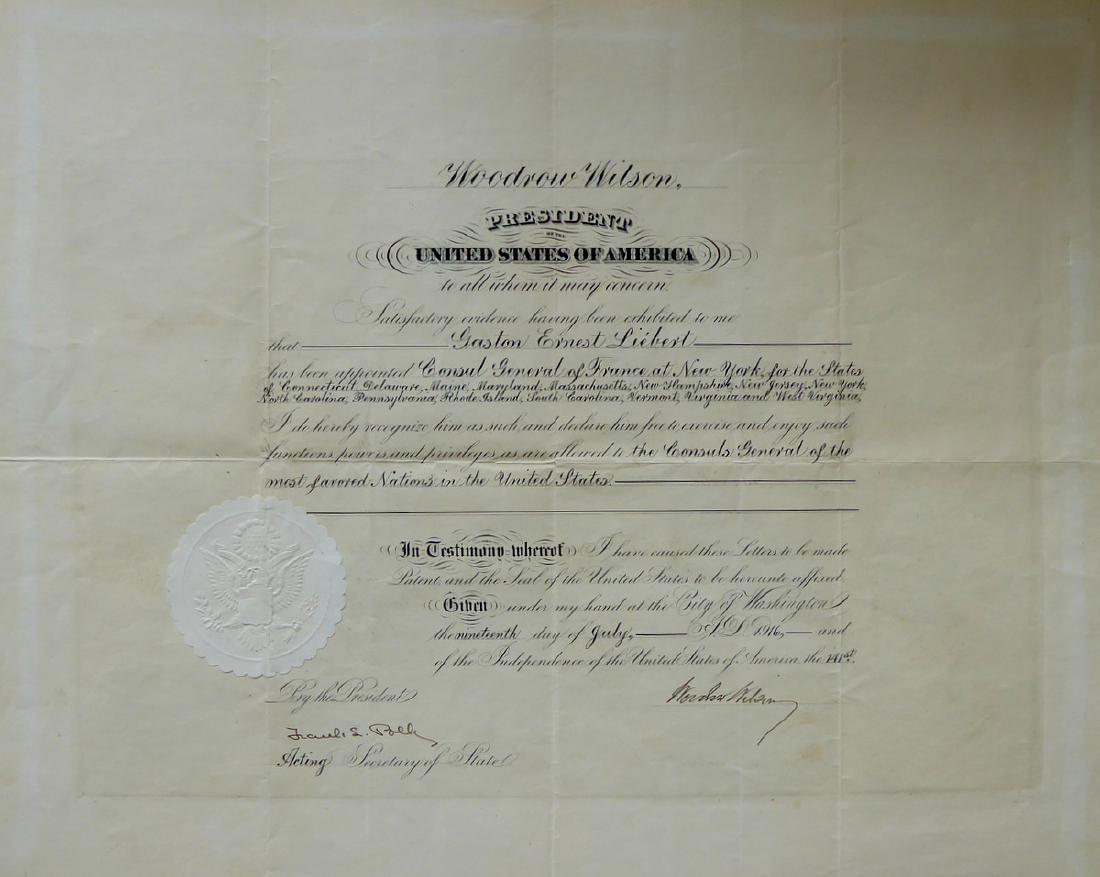 Woodrow Wilson,
PRESIDENT
OF THE
UNITED STATES OF AMERICA
to all whom it may concern.
Satisfactory evidence having been exhibited to me
that Gaston Ernest Liébert
has been appointed Consul General of France, at New York, for the States
of Connecticut, Delaware, Maine, Maryland, Massachusetts, New Hampshire, New Jersey, New York,
North Carolina, Pennsylvania, Rhode Island, South Carolina, Vermont, Virginia and West Virginia,
I do hereby recognize him as such, and declare him free to exercise and enjoy such
functions, powers and privileges, as are allowed to the Consuls General of the
most favored Nations in the United States.
In Testimony whereof I have caused these Letters to be made
Patent, and the Seal of the United States to be hereunto affixed.
Given under my hand at the City of Washington
the nineteenth day of July, A.D. 1916, and
of the Independence of the United States of America, the 141st.
By the President
Woodrow Wilson
Frank L. Polk
Acting Secretary of State